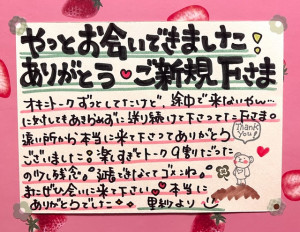 やっとお会いできました!
ありがとう♥ご新規下さま
オキニトークずっとしてたけど、途中で来ないやん…
にめげしてもあきらめずに送り続けて下さってた下さま。
遠い所から本当に来て下さってありがとう
Thank you!
ございました!!楽しすぎてトーク9割だった
の少し残念。延長できなくてゴメンね。
またぜひ会いに来て下さい♥本当に
ありがとうでした
里紗より